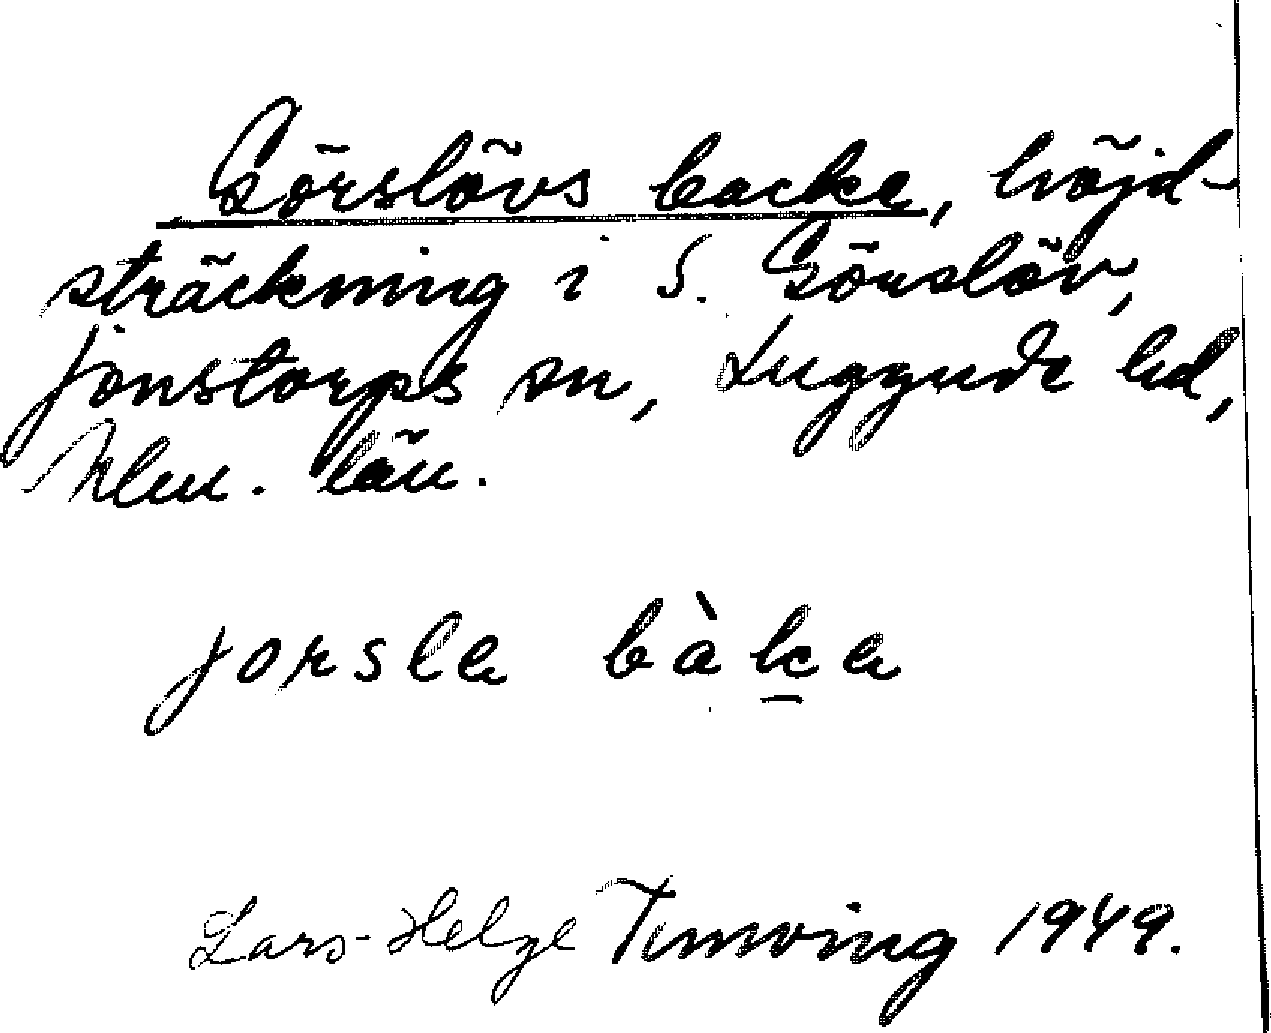 Görslövs backe, höjd-
sträckning i S. Görslöv,
Jonstorps sn, Luggude hd,
Mlm. län.
jorsla bàka
Lars-Helge Temving 1949.